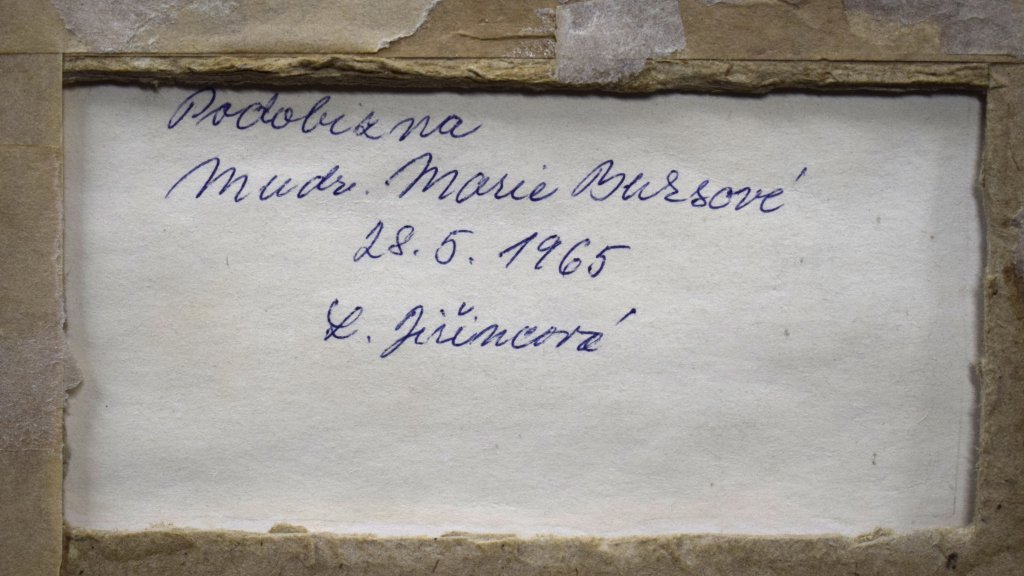 Podobizna
Mudr. Marie Bursové
28. 5. 1965
L. Jiřincová